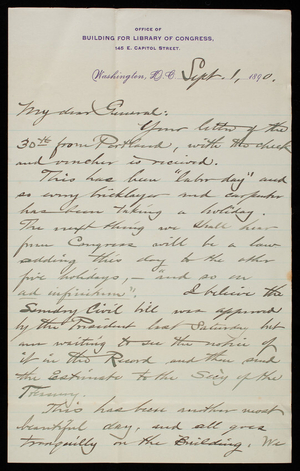 OFFICE OF
BUILDING FOR LIBRARY OF CONGRESS,
145 E. CAPITOL STREET.
Washington, D.C. Sept. 1, 1890.
My dear General:
Your letter of the
30th from Portland, with the check
and voucher is received.
This has been "labor day" and
so every bricklayer and carpenter
has been taking a holiday.
The next thing we shall hear
from Congress will be a law
adding this day to the other
five holidays, – "and so on
ad infinitum". I believe the
Sundry Civil bill was approved
by the President last Saturday but
am waiting to see the notice of
it in the Record and then send
the Estimate to the Secy of the
Treasury.
This has been another most
beautiful day, and all goes
tranquilly on the Building. We